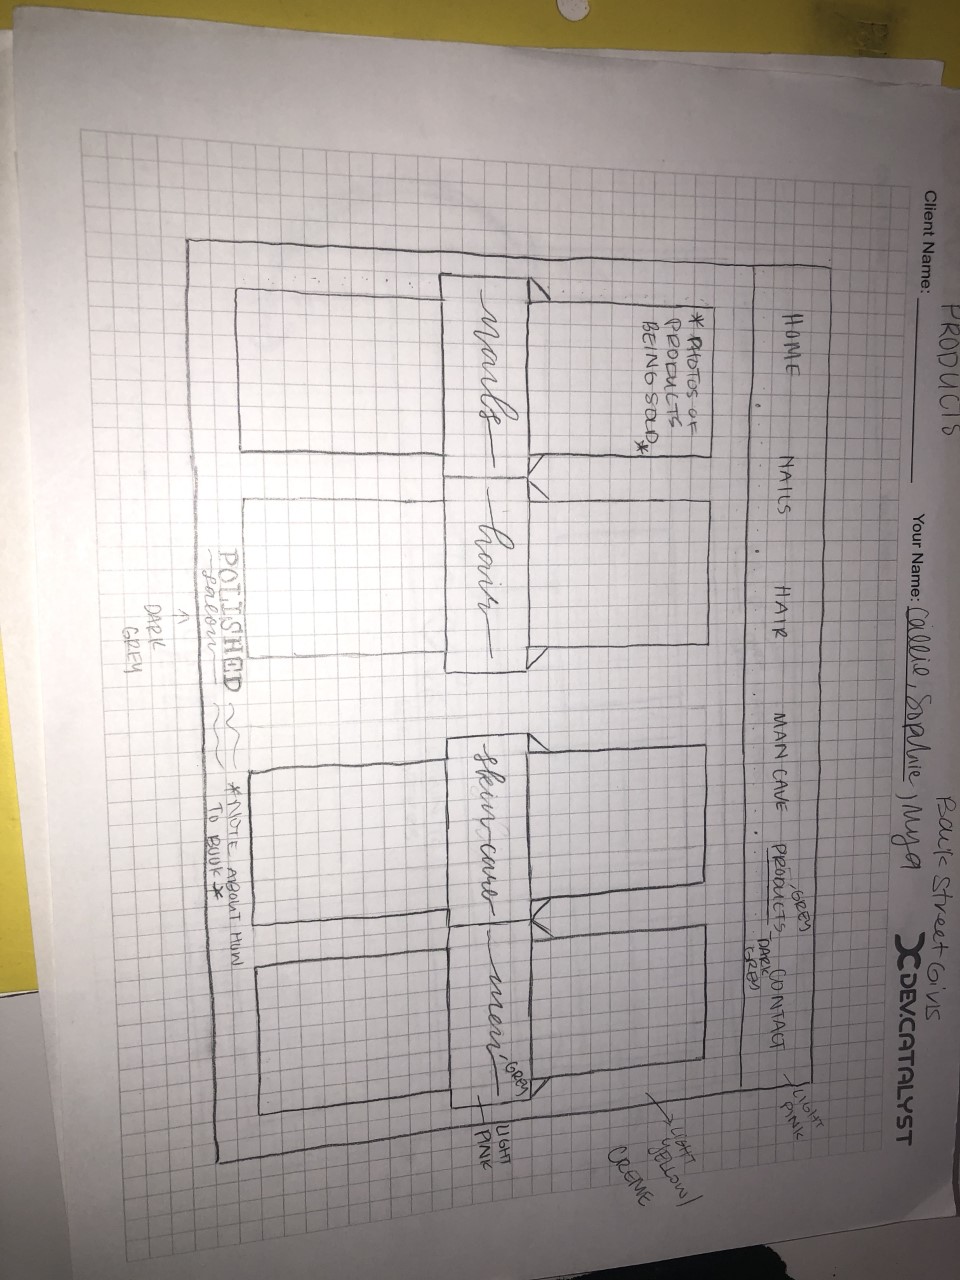 PRODUCTS
Back Street Girls
Client Name:
Your Name: Callie, Sophie, Mya
DEV.CATALYST
HOME NAILS HAIR MAN CAVE PRODUCTS CONTACT
GREY
DARK
GREY
LIGHT
PINK
* PHOTOS OF
PRODUCTS
BEING SOLD *
LIGHT
YELLOW/
CREME
nails hair skin care men
GREY
LIGHT
PINK
POLISHED
salon
* NOTE ABOUT HOW
TO BOOK *
DARK
GREY